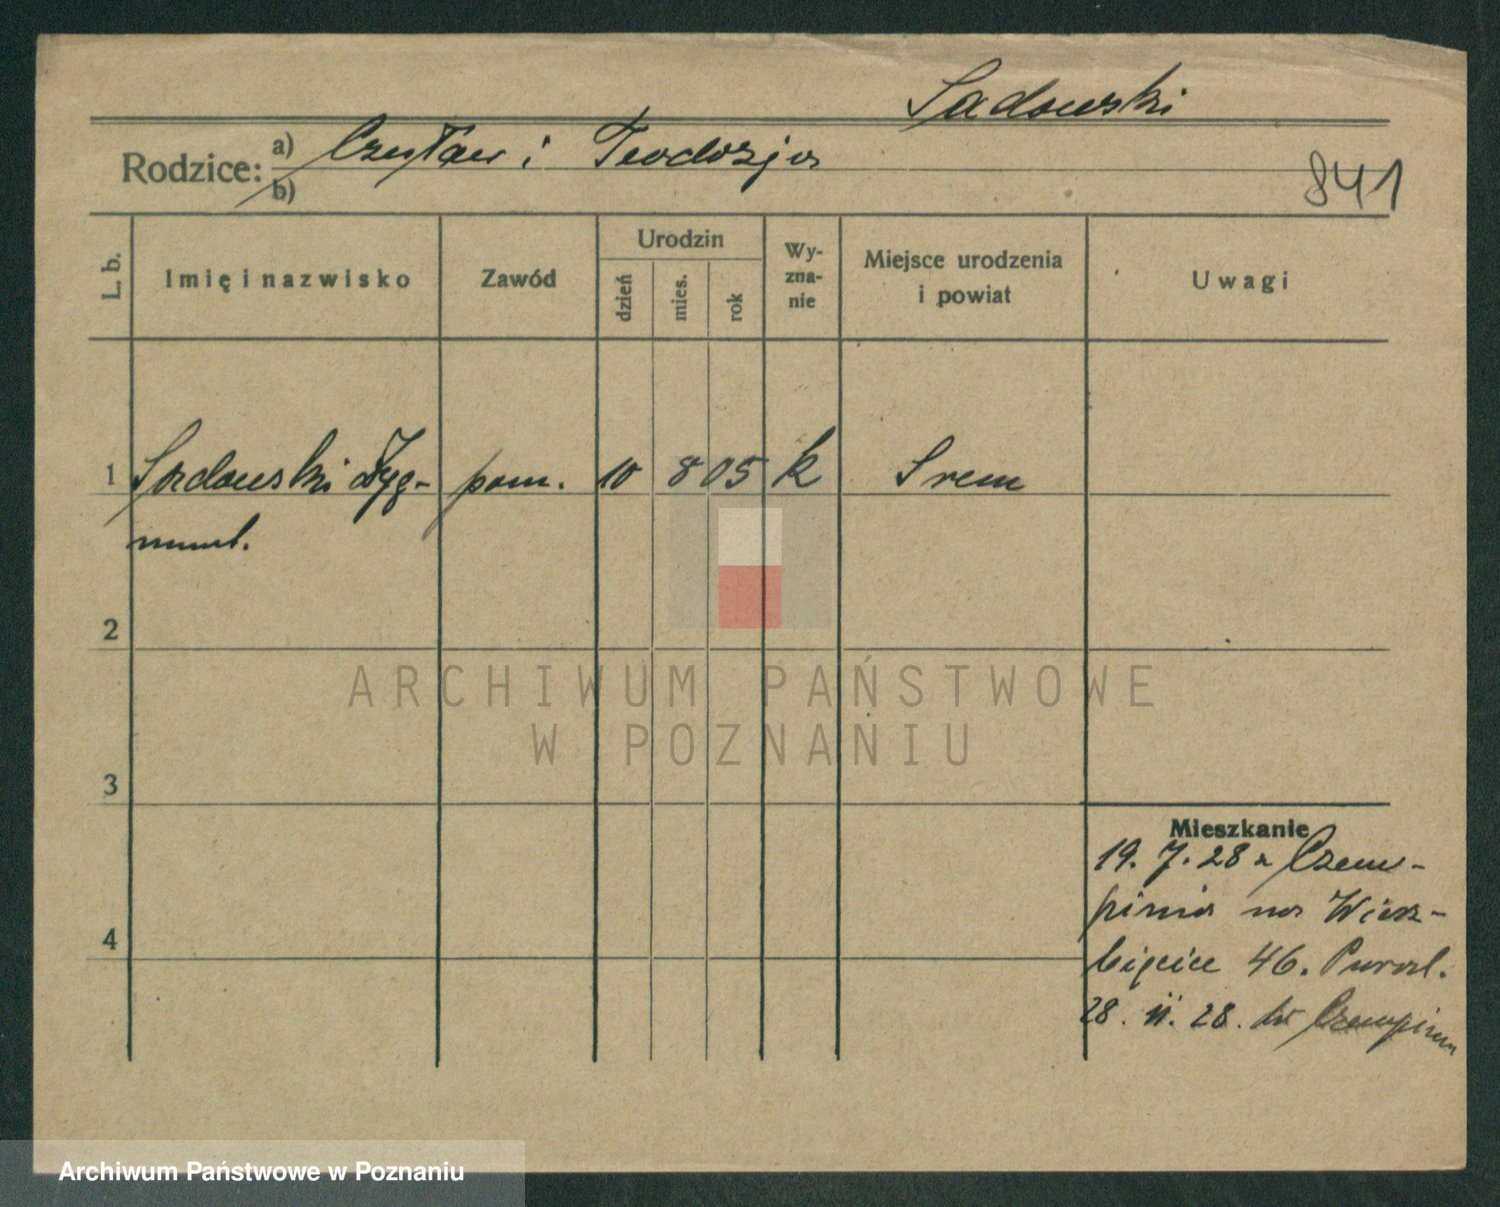 Sadowski
Rodzice: a) Czesław i Teodozja
b)
841
L. b.
Imię i nazwisko
Zawód
Urodzin
dzień
mies.
rok
Wy-
zna-
nie
Miejsce urodzenia
i powiat
Uwagi
1 Sadowski Zyg- pom. 10 8 05 k Srem
munt.
2
3
4
Mieszkanie
19. 7. 28 z Czem-
pinia na Wierz-
bięcice 46.
28. 11. 28. do Czempinia
ARCHIWUM PAŃSTWOWE
W POZNANIU
Archiwum Państwowe w Poznaniu